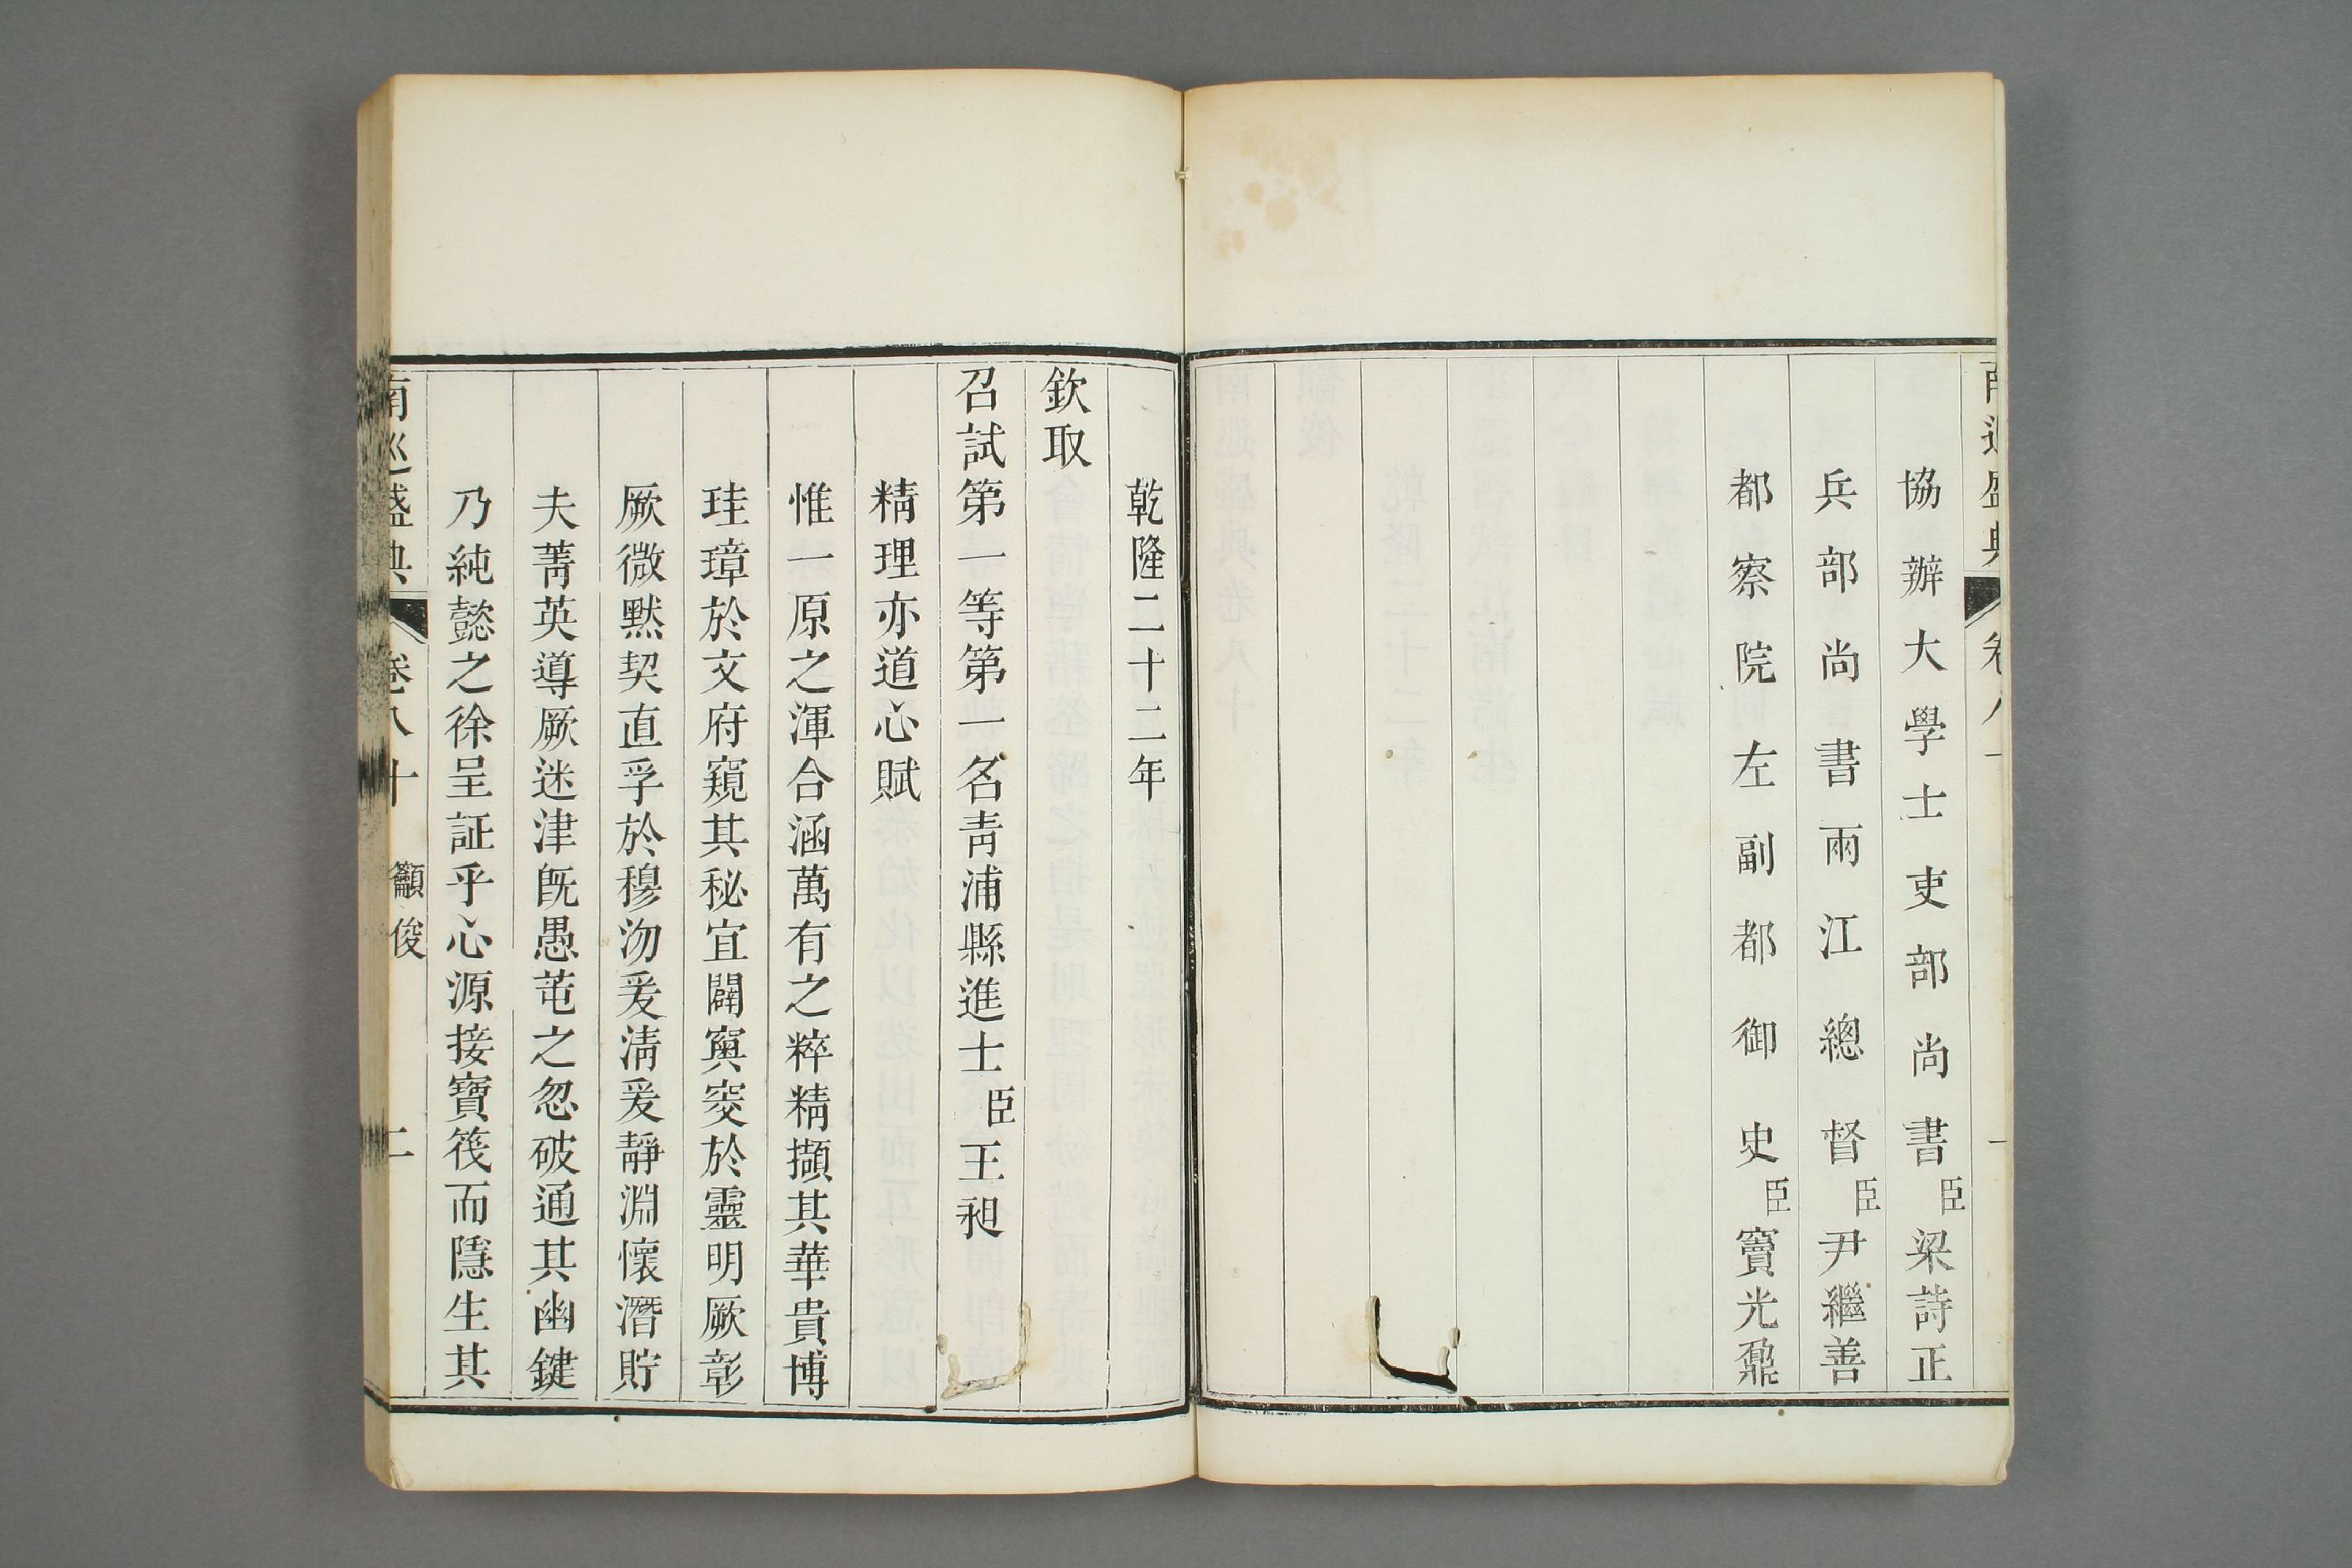 協辦大學士吏部尚書臣梁詩正
兵部尚書兩江總督臣尹繼善
都察院左副都御史臣竇光鼐
乾隆二十二年
欽取
召試第一等第一名青浦縣進士臣王昶
精理亦道心賦
惟一原之渾合涵萬有之粹精擷其華貴博
珪璋於文府窺其秘宜闢窔奧於靈明厥彰
厥微默契直孚於穆沕爰清爰靜淵懷潛貯
夫菁英導厥迷津旣愚芚之忽破通其幽鍵
乃純懿之徐呈証乎心源接寶筏而隱生其
南巡盛典
卷八十
籲俊
二